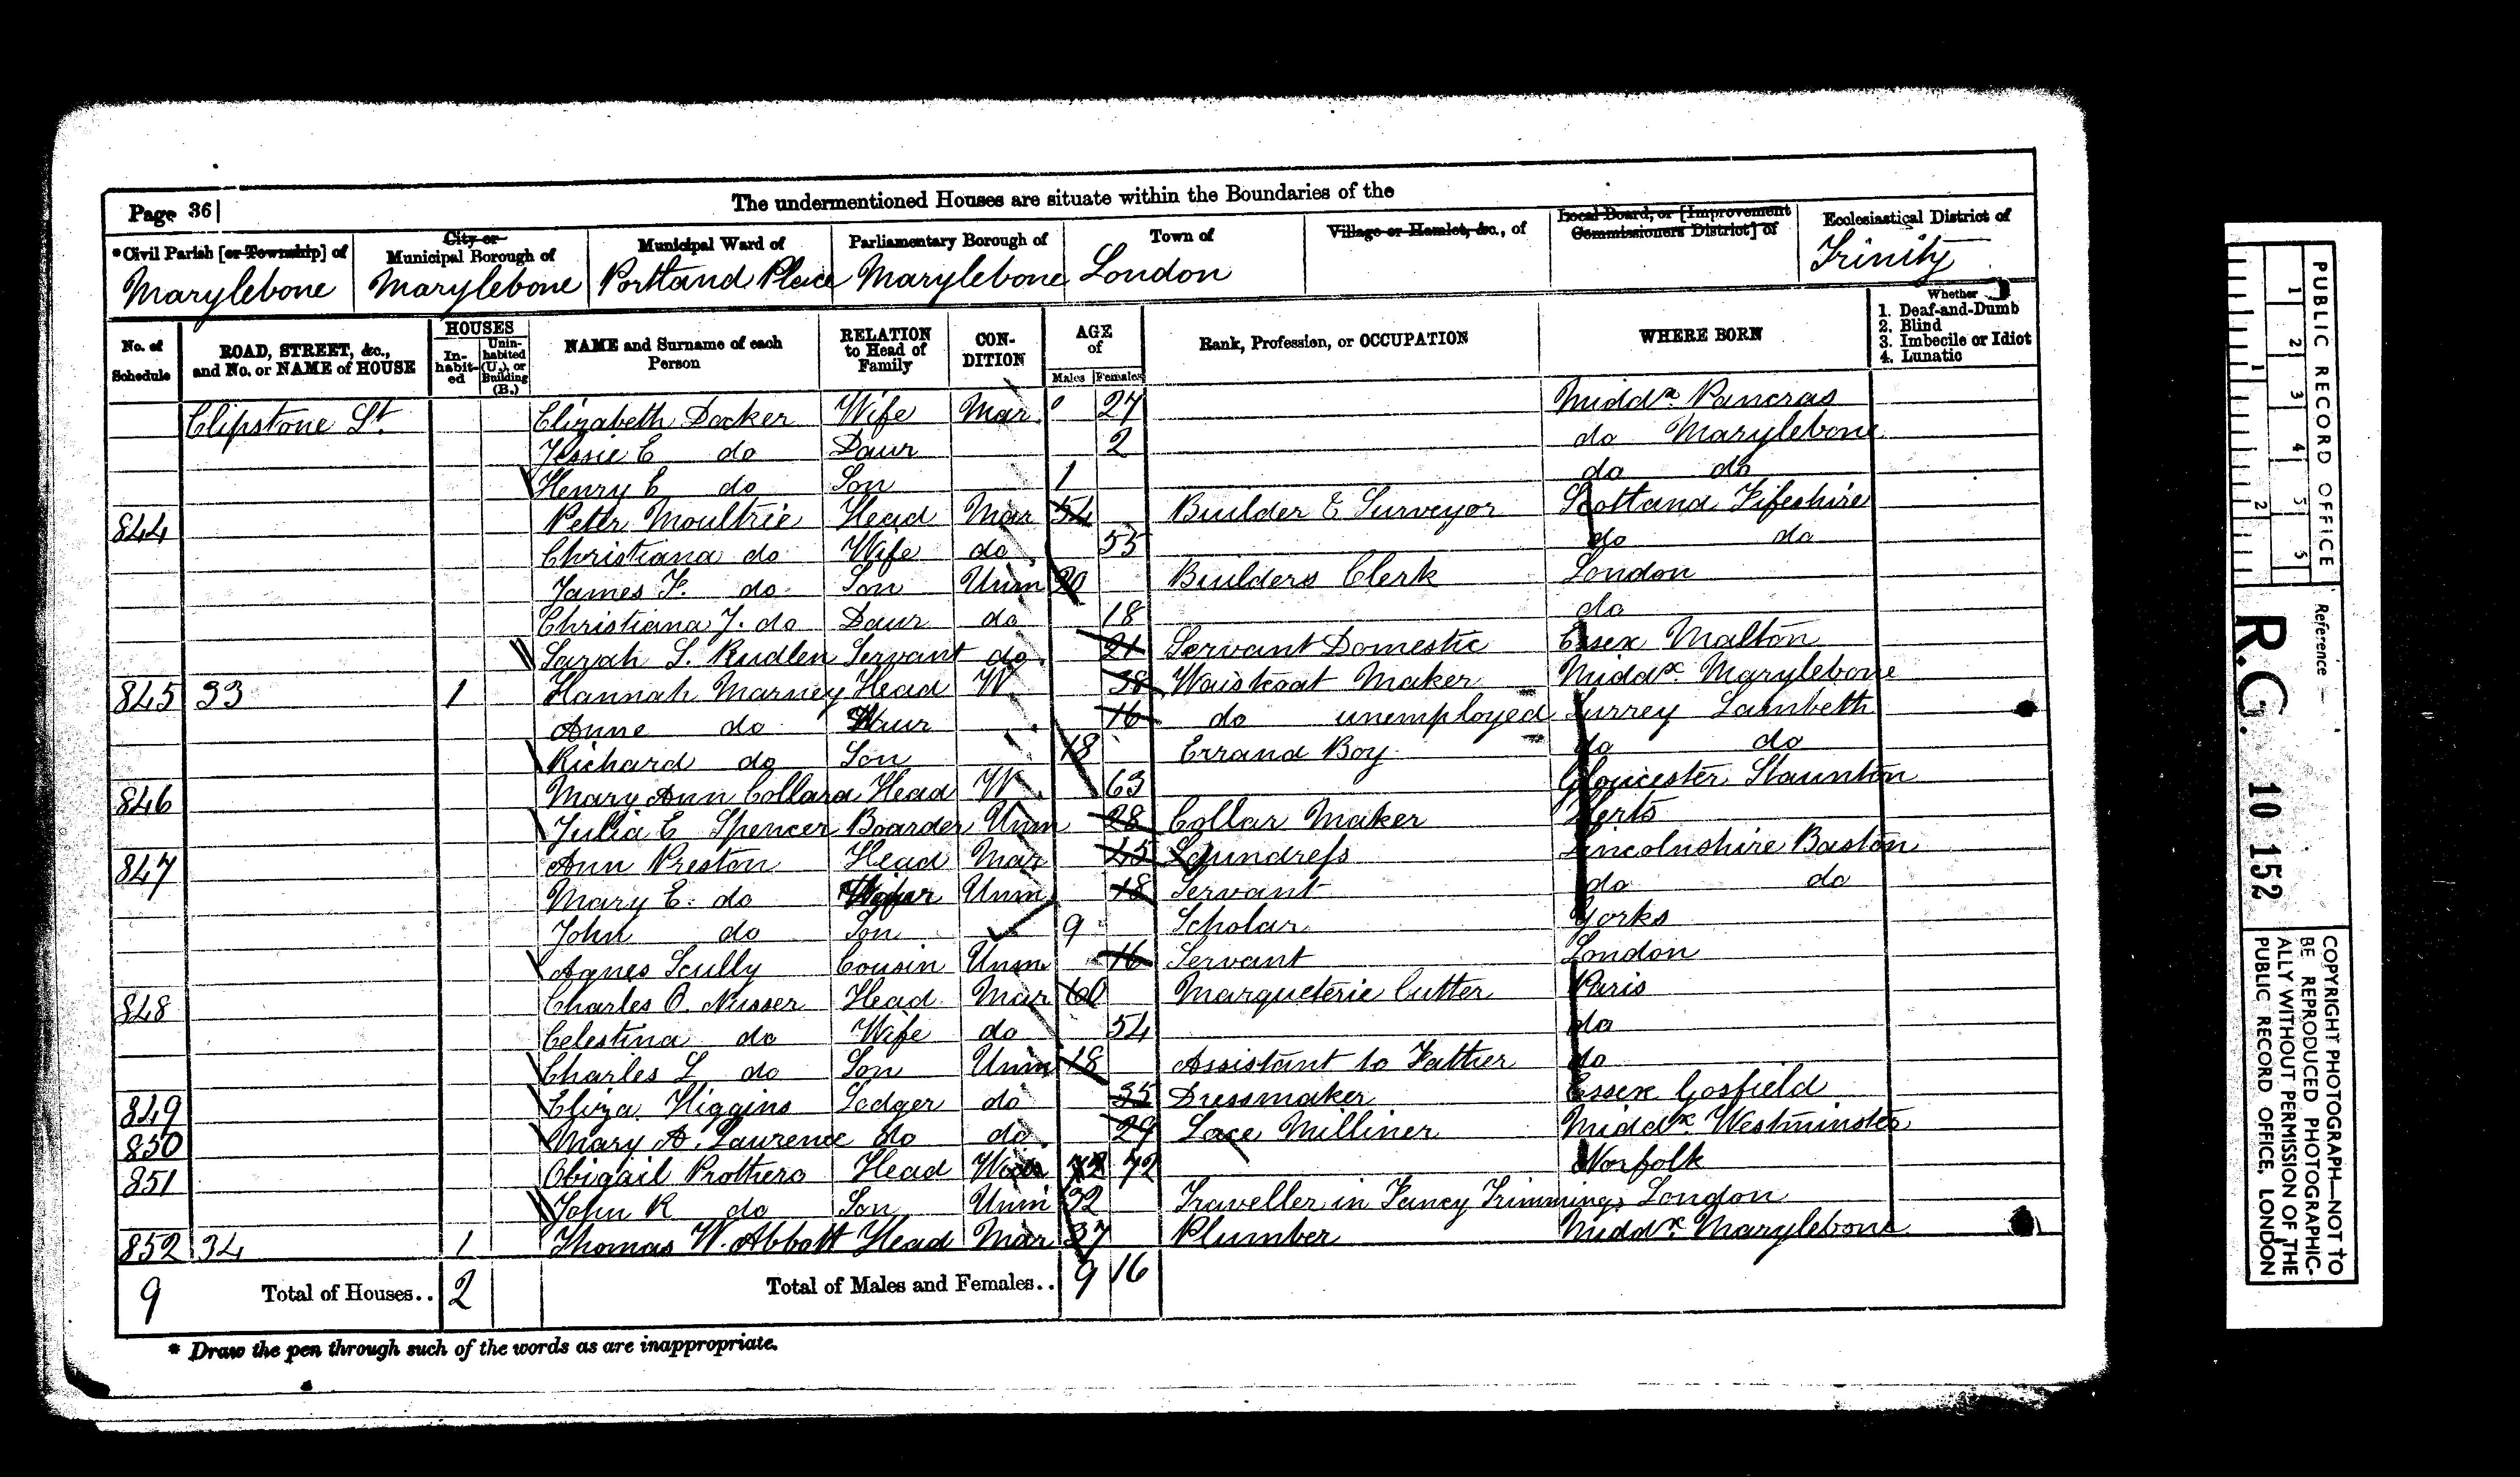 The undermentioned Houses are situate within the Boundaries of the
Page 36
*Civil Parish [or Township] of Marylebone
City or Municipal Borough of Marylebone
Municipal Ward of Portland Place
Parliamentary Borough of Marylebone
Town of London
Village or Hamlet, &c., of
Local Board, or [Improvement Commissioners District] of
Ecclesiastical District of Trinity
No. of Schedule
ROAD, STREET, &c., and No. or NAME of HOUSE
HOUSES
Inhabited
Uninhabited (U.), or Building (B.)
NAME and Surname of each Person
RELATION to Head of Family
CONDITION
AGE of
Males Females
Rank, Profession, or OCCUPATION
WHERE BORN
Whether
1. Deaf-and-Dumb
2. Blind
3. Imbecile or Idiot
4. Lunatic
Clipstone St. Elizabeth Docker Wife Mar 27 Middx Pancras
Jessie E do Daur 2 do Marylebone
Henry E do Son 1 do do
844 Peter Moultrie Head Mar 54 Builder & Surveyor Scotland Fifeshire
Christiana do Wife do 55 do do
James F. do Son Unm 20 Builders Clerk London
Christiana J. do Daur do 18 do
Sarah S. Rudlen Servant do 21 Servant Domestic Essex Malton
845 33 1 Hannah Marney Head W 38 Waistcoat Maker Middx Marylebone
Anne do Daur 16 do unemployed Surrey Lambeth
Richard do Son 18 Errand Boy do do
846 Mary Ann Collard Head W 63 Gloucester Staunton
Julia E Spencer Boarder Unm 28 Collar Maker Herts
847 Ann Preston Head Mar 45 Laundress Lincolnshire Baston
Mary E. do Unm 18 Servant do do
John do Son 9 Scholar Yorks
Agnes Scully Cousin Unm 16 Servant London
848 Charles O. Nusser Head Mar 60 Marqueterie Cutter Paris
Celestina do Wife do 54 do
Charles L do Son Unm 18 Assistant to Father do
849 Eliza Higgins Lodger do 35 Dressmaker Essex Gosfield
850 Mary A. Laurence do do 29 Lace Milliner Middx Westminster
851 Abigail Prothero Head 72 72 Norfolk
John R do Son Unm 32 Traveller in Fancy Trimmings London
852 34 1 Thomas W. Abbott Head Mar 37 Plumber Middx Marylebone
9 Total of Houses.. 2 Total of Males and Females.. 9 16
* Draw the pen through such of the words as are inappropriate.
PUBLIC RECORD OFFICE
1 2 3 4 5
1 2
Reference
R.G. 10 152
COPYRIGHT PHOTOGRAPH—NOT TO
BE REPRODUCED PHOTOGRAPHIC-
ALLY WITHOUT PERMISSION OF THE
PUBLIC RECORD OFFICE, LONDON